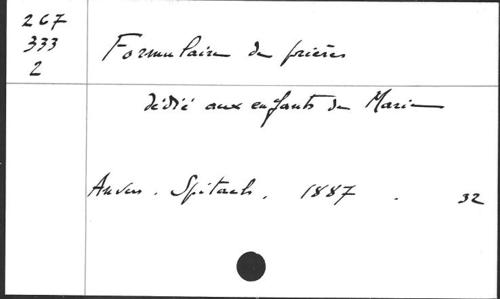 267
333
2
Formulaire de prières
dédié aux enfants de Marie
Anvers. Spitaels. 1887. 32